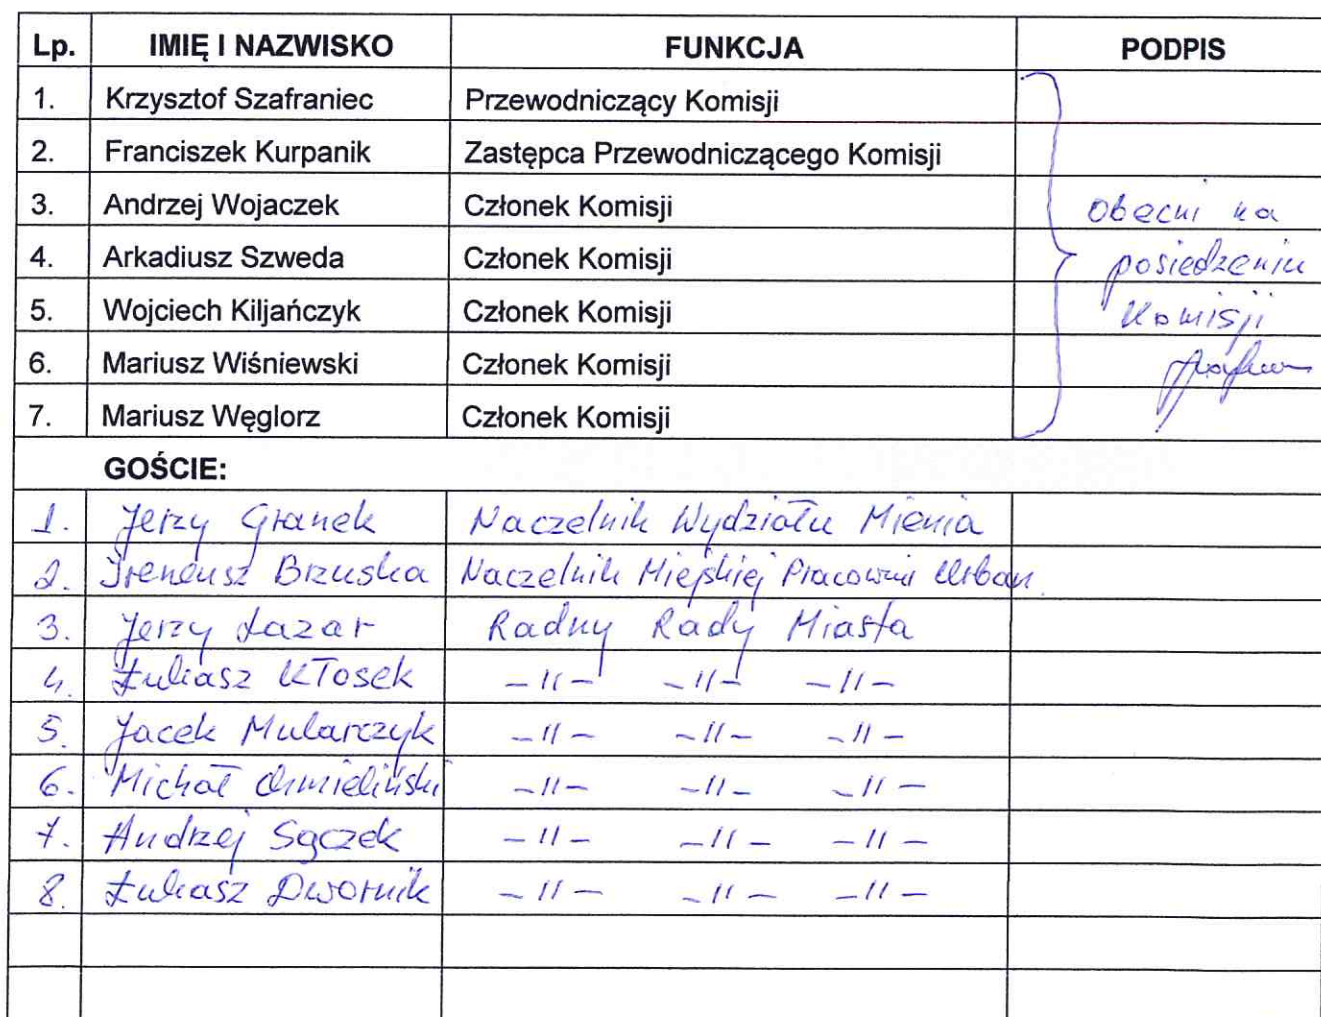 Lp. IMIĘ I NAZWISKO FUNKCJA PODPIS
1. Krzysztof Szafraniec Przewodniczący Komisji
2. Franciszek Kurpanik Zastępca Przewodniczącego Komisji
3. Andrzej Wojaczek Członek Komisji Obecni na
4. Arkadiusz Szweda Członek Komisji posiedzeniu
5. Wojciech Kiljańczyk Członek Komisji Komisji
6. Mariusz Wiśniewski Członek Komisji
7. Mariusz Węglorz Członek Komisji
GOŚCIE:
1. Jerzy Granek Naczelnik Wydziału Mienia
2. Ireneusz Brzuska Naczelnik Miejskiej Pracowni Urban.
3. Jerzy Łazar Radny Rady Miasta
4. Łukasz Kłosek -11- -11- -11-
5. Jacek Mularczyk -11- -11- -11-
6. Michał Chmieliński -11- -11- -11-
7. Andrzej Sączek -11- -11- -11-
8. Łukasz Dwornik -11- -11- -11-